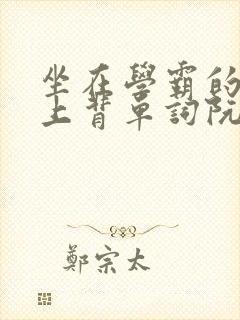 坐在學霸的
上背單詞阮
鄭宗太